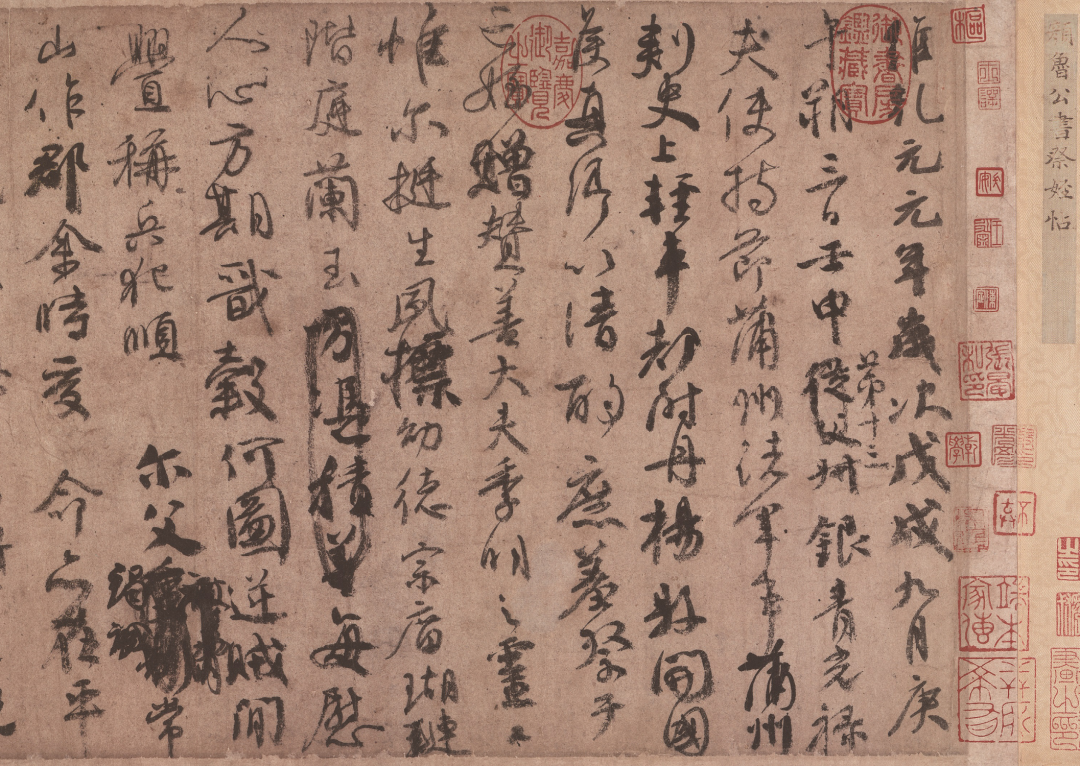 顏魯公書祭姪帖
維乾元元年歲次戊戌九月庚
午朔三日壬申第十三從父叔銀青光祿
夫使持節蒲州諸軍事蒲州
刺史上輕車都尉丹楊縣開國
侯真卿以清酌庶羞祭于
亡姪贈贊善大夫季明之靈曰
惟爾挺生夙標幼德宗廟瑚璉
階庭蘭玉方憑積善每慰
人心方期戩穀何圖逆賊間
釁稱兵犯順爾父竭誠常
山作郡余時受命亦在平
御書房鑑藏寶
嘉慶御覽之寶